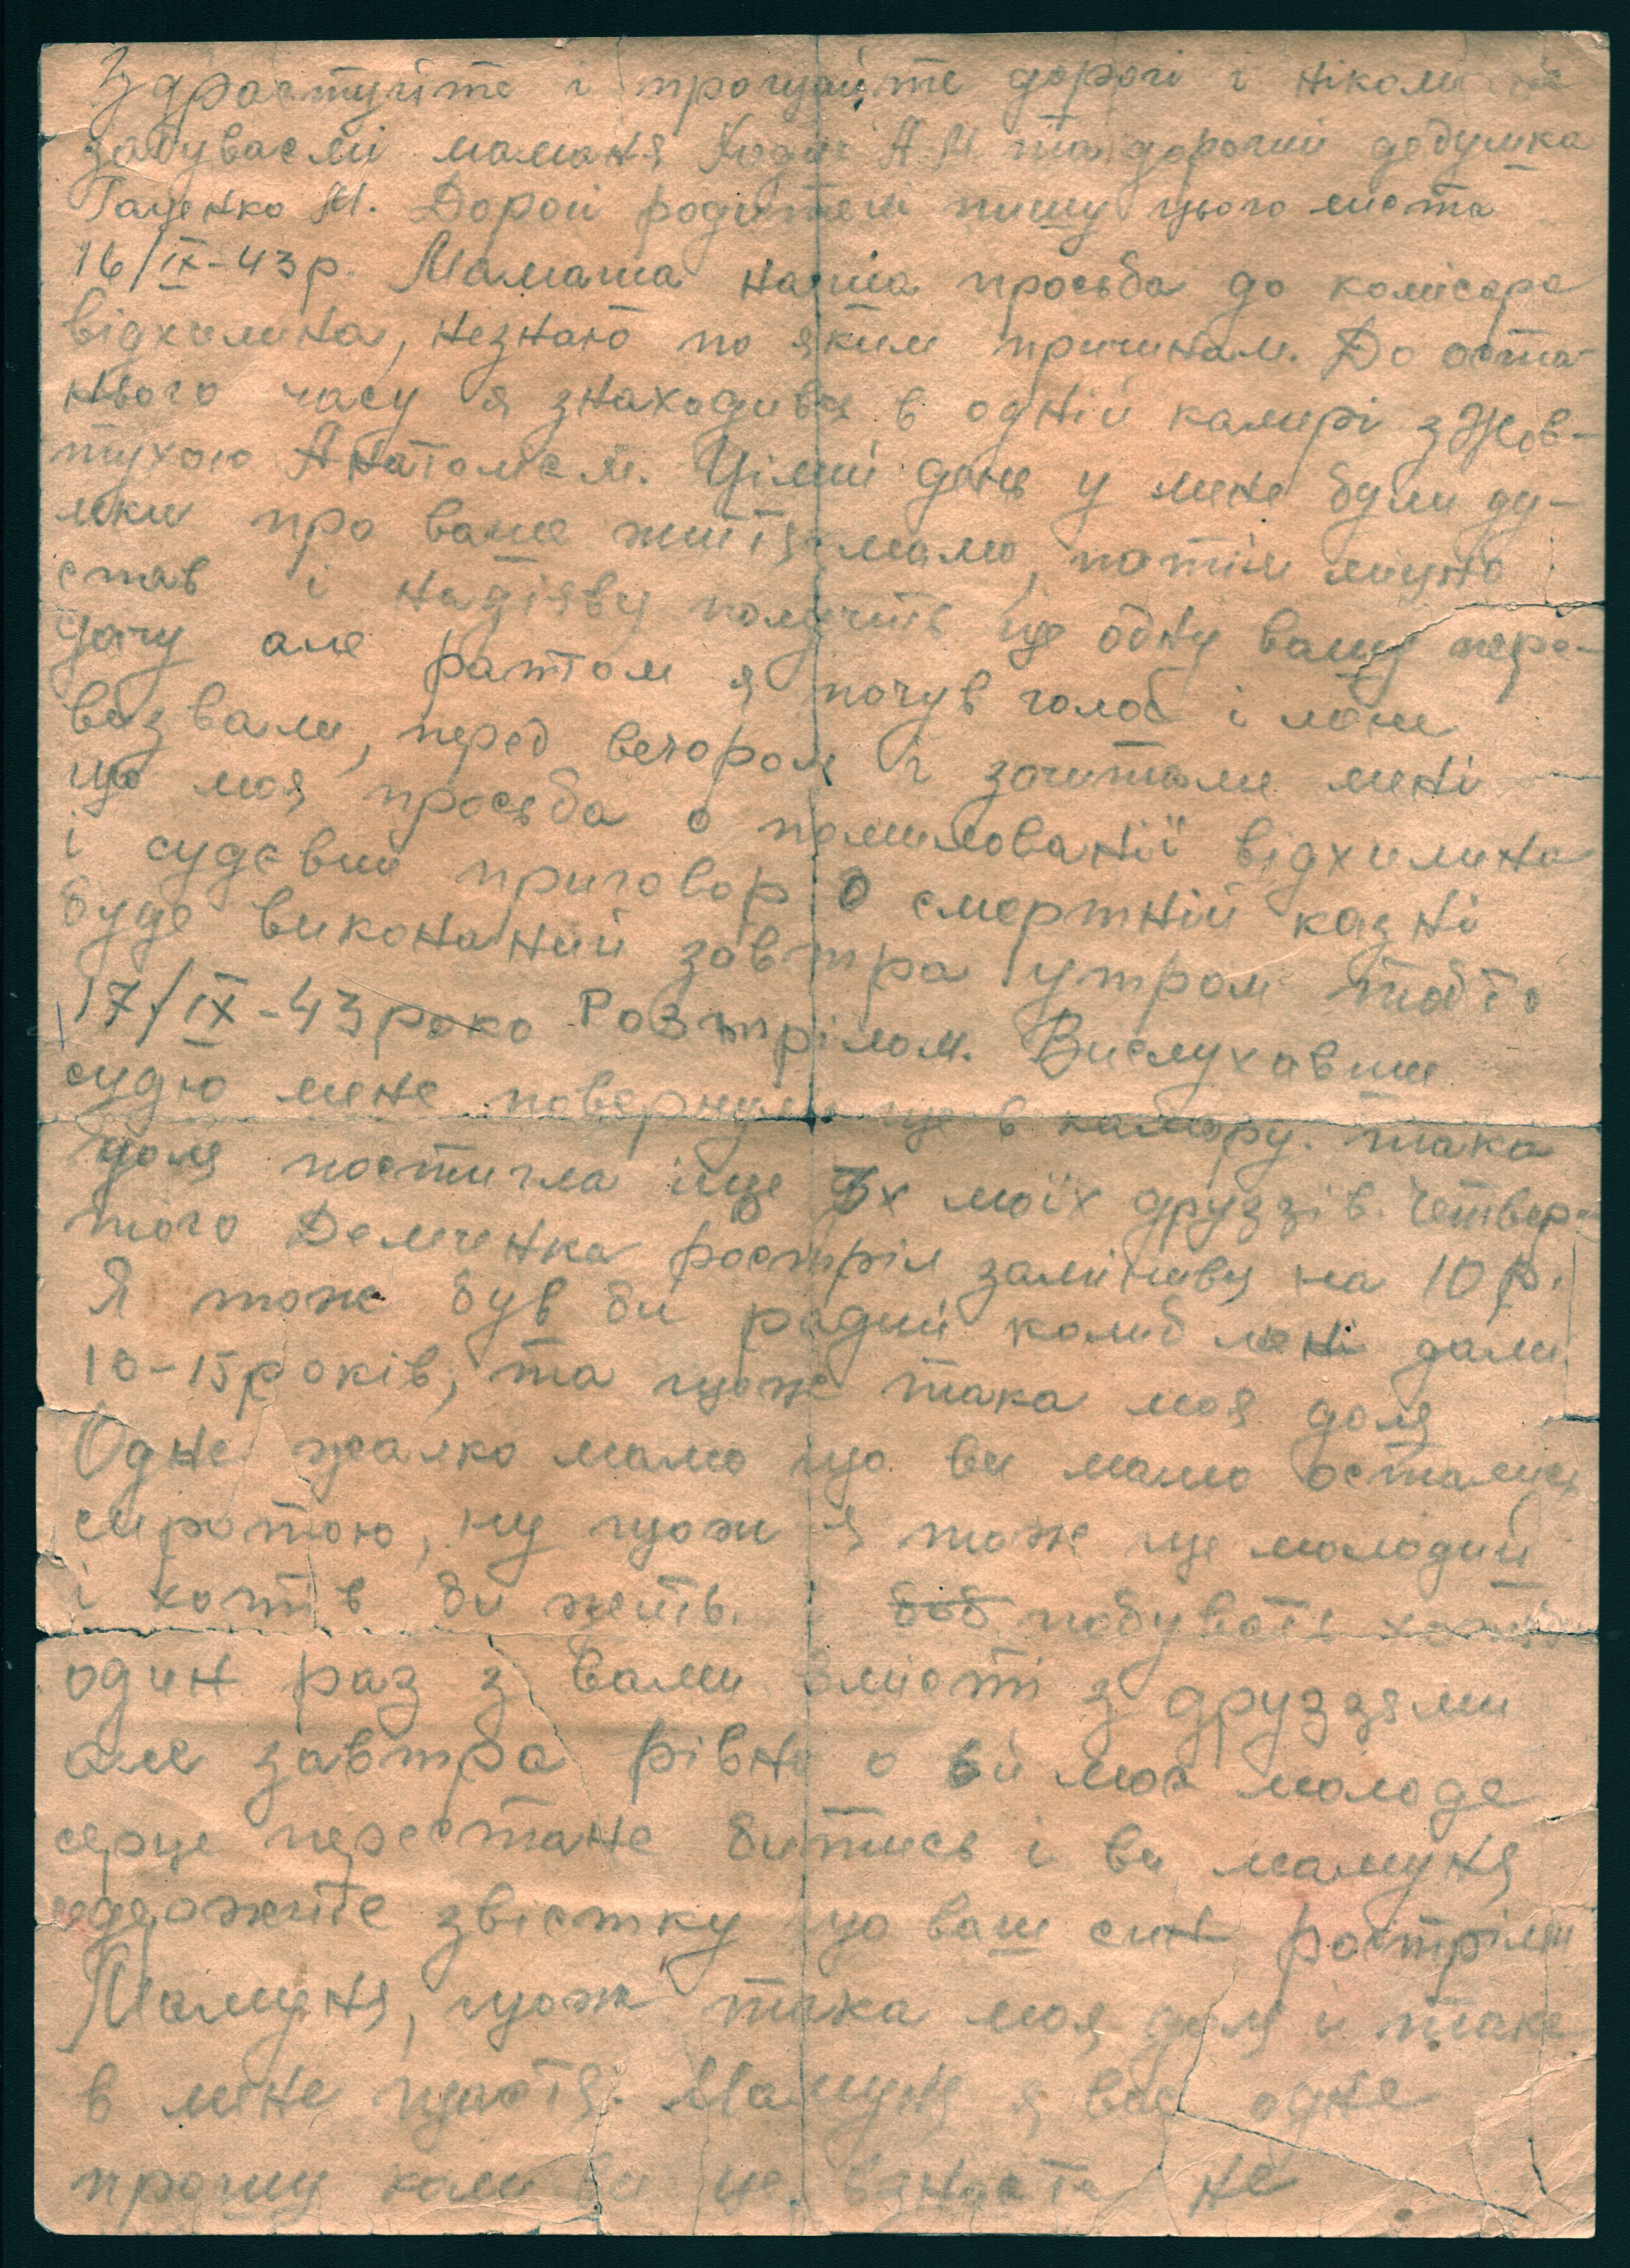 Здрастуйте і прощайте дорогі і ніколи не
забуваємі маманя Ходис А.М та дорогий дєдушка
Гаценко М. Дорогі родітелі пишу цього листа
16/IX-43р. Мамаша наша просьба до комісара
відхилина, незнаю по яким причинам. До оста-
нього часу я знаходився в одній камирі з Жов-
тухою Анатолєм. Цілий день у мене були ду-
мки про ваше життя мамо, потім
став і надіявся получить ще одну вашу пере-
дачу але раптом я почув голос і мене
визвали, перед вечором і зачитали мені
що моя просьба о помиловании відхилина
і судєвий приговор о смертній казні
буде виконаний завтра утром тобто
17/IX-43роко Розтрілом. Вислухавши
судю мене повернули ще в камєру. така
доля постигла іще 3х моїх друззів. Четвер-
того Демченка ростріл замінився на 10 р.
Я тоже був би радий колиб мені дали
10-15 років, та щоже така моя доля
Одне жалко мамо що ви мамо остались
сиротою, ну щож я тоже ще молодий
і хотів би жить. побувать хотяб
один раз з вами вмісті з друззями
але завтра рівно о 6й моє молоде
серце перестане битись і ви мамуня
одержите звістку що ваш син ростріляний
Мамуня, щож така моя доля и таке
в мене щастя. Мамуня я вас одне
прошу коли ви це взнаєте не